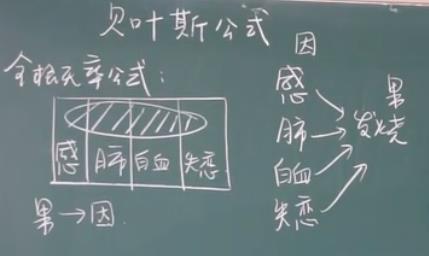 贝叶斯公式
全概率公式:
感 肺 白血 失恋
果→因.
因
感
肺
白血
失恋
果
发烧